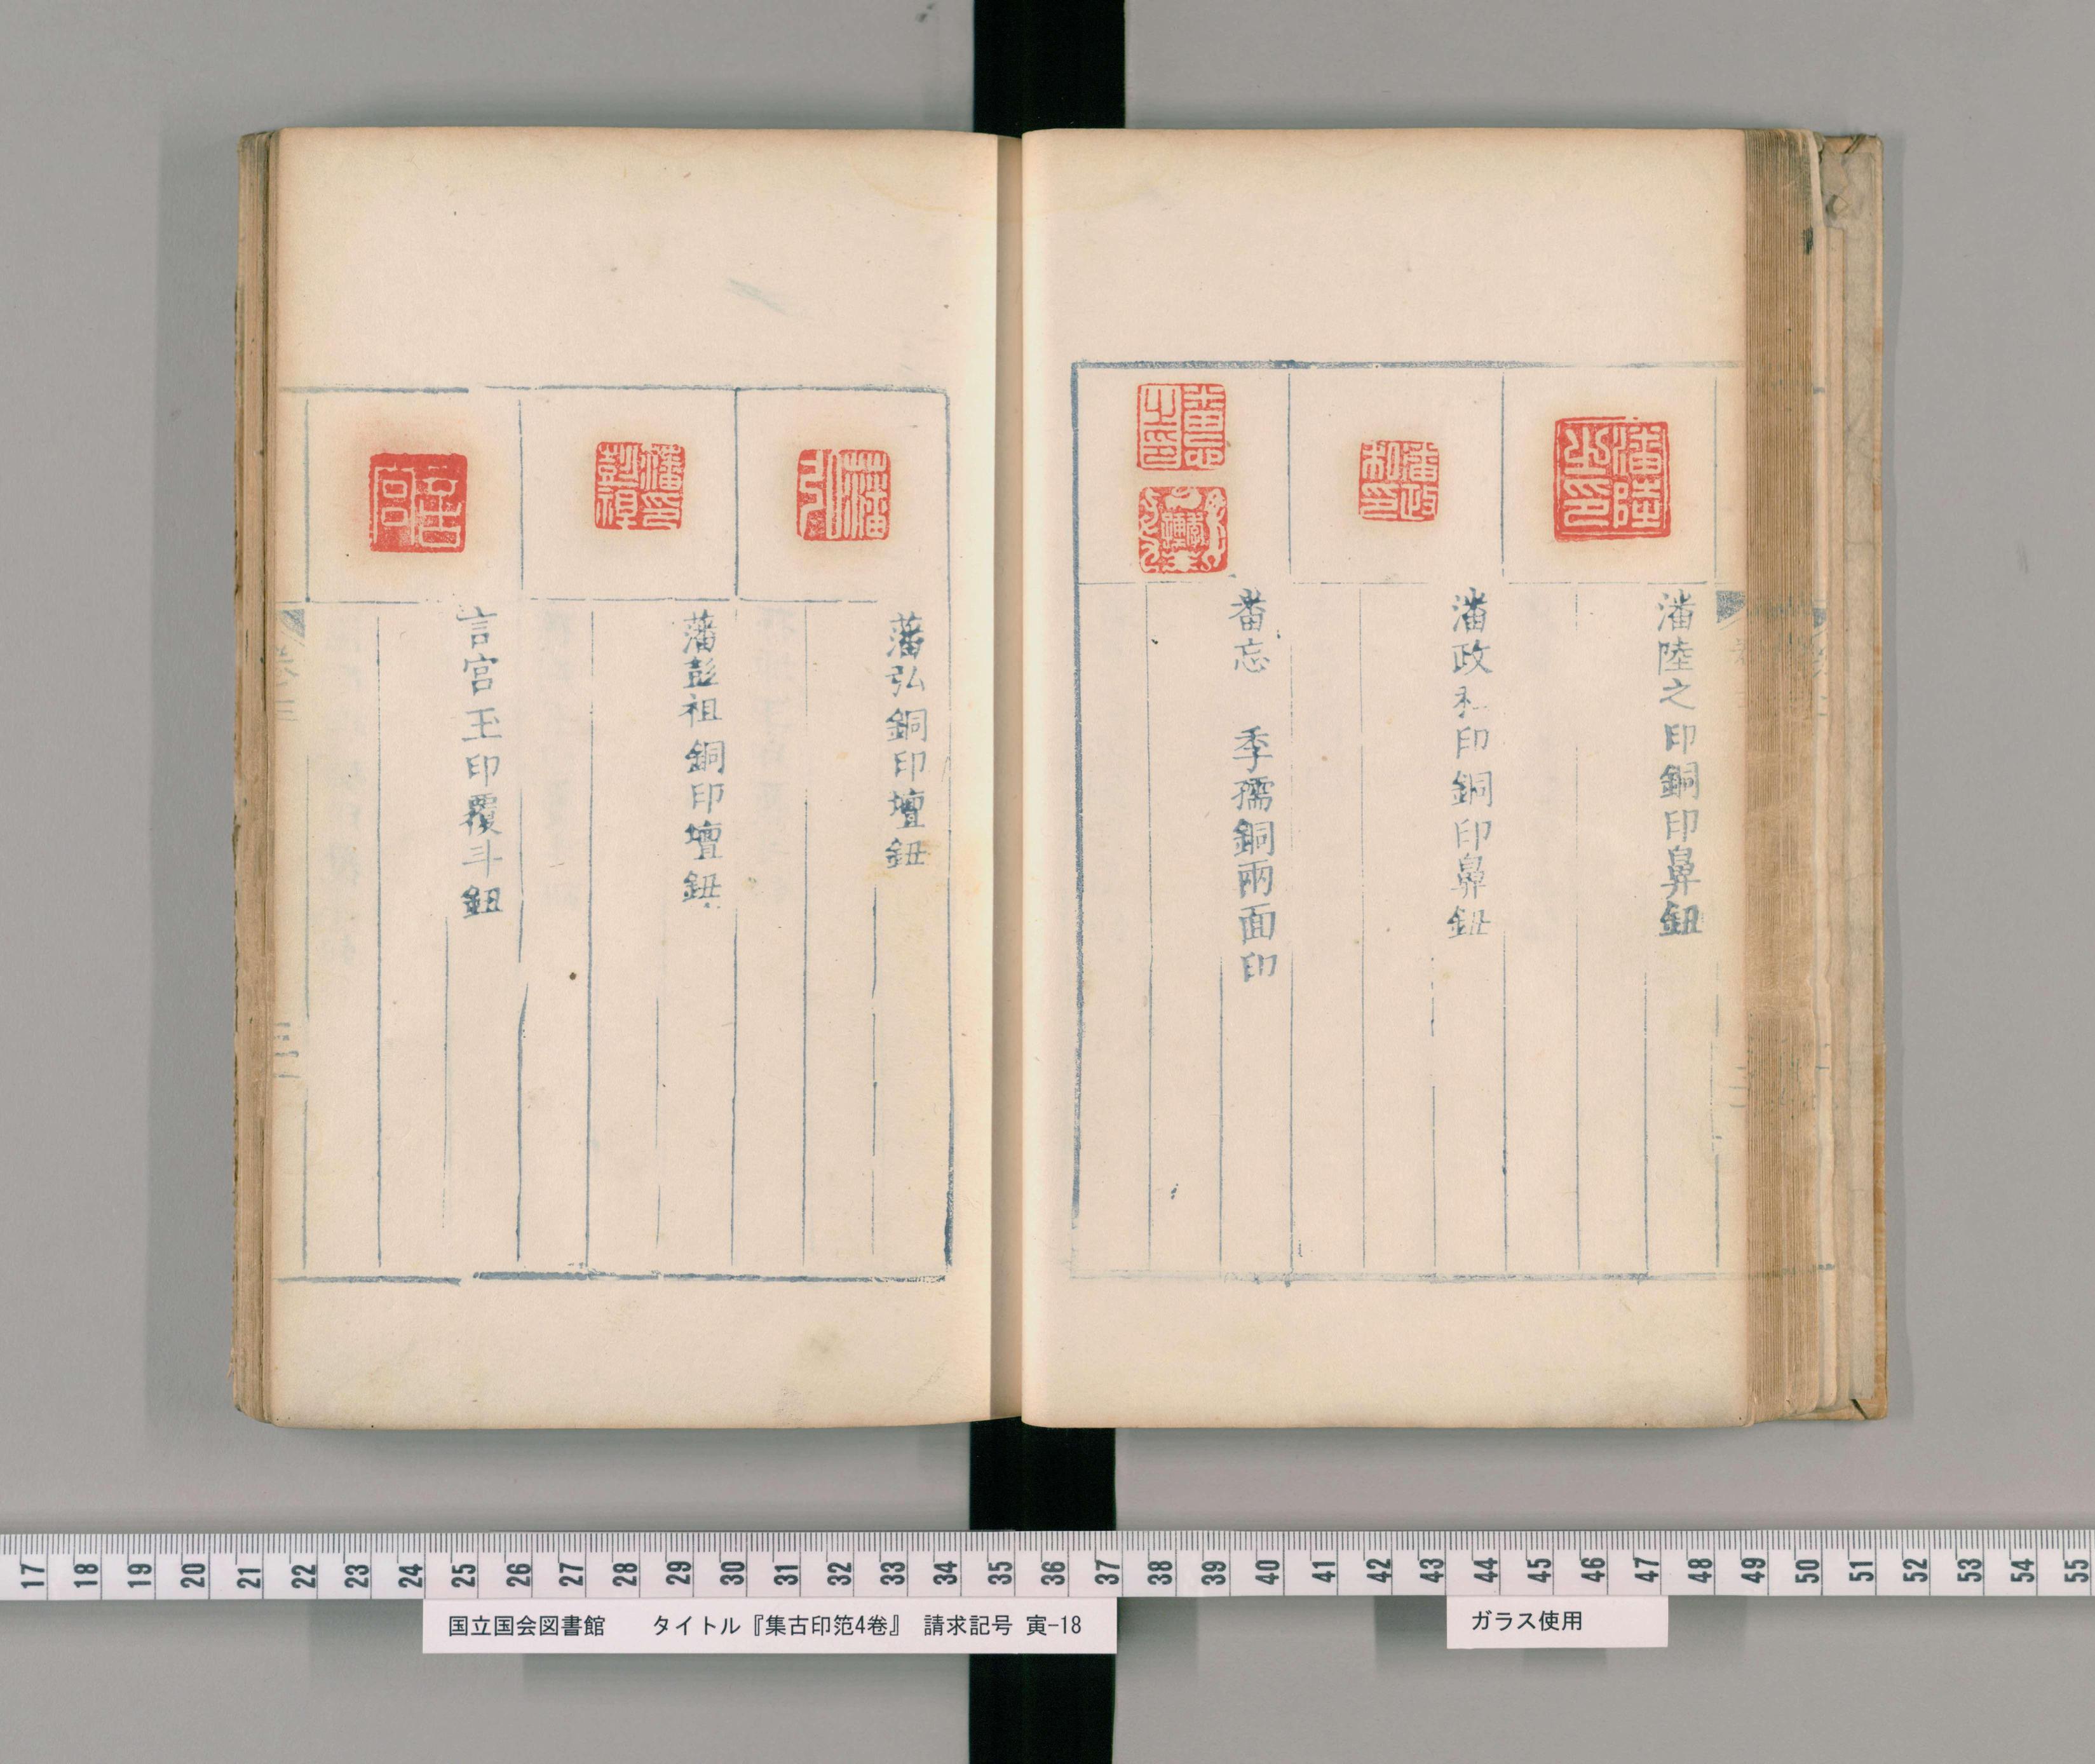 潘陸之印銅印鼻鈕
潘政和印銅印鼻鈕
番忘　季孺銅兩面印
藩弘銅印壇鈕
藩彭祖銅印壇鈕
言宮玉印覆斗鈕
17 18 19 20 21 22 23 24 25 26 27 28 29 30 31 32 33 34 35 36 37 38 39 40 41 42 43 44 45 46 47 48 49 50 51 52 53 54 55
国立国会図書館　タイトル『集古印笵4巻』　請求記号 寅-18
ガラス使用